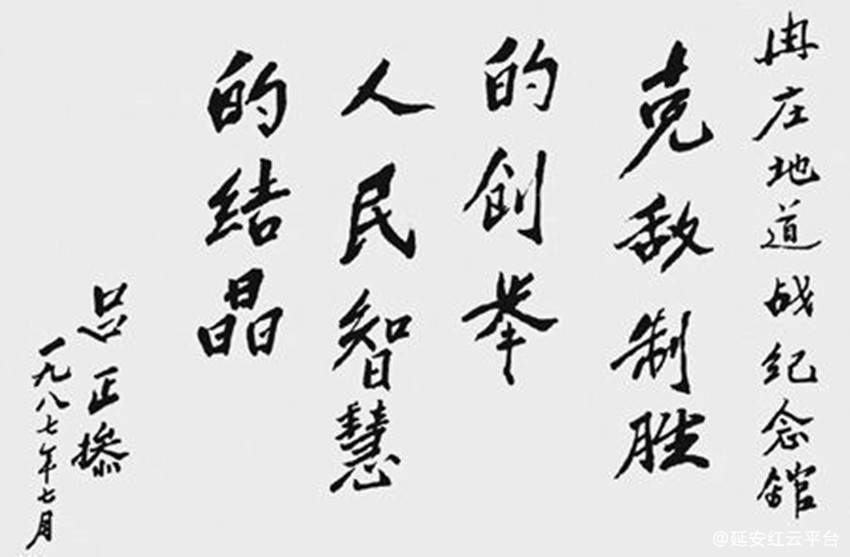 冉庄地道战纪念馆
克敌制胜
的创举
人民智慧
的结晶
吕正操
一九八七年七月
@延安红云平台